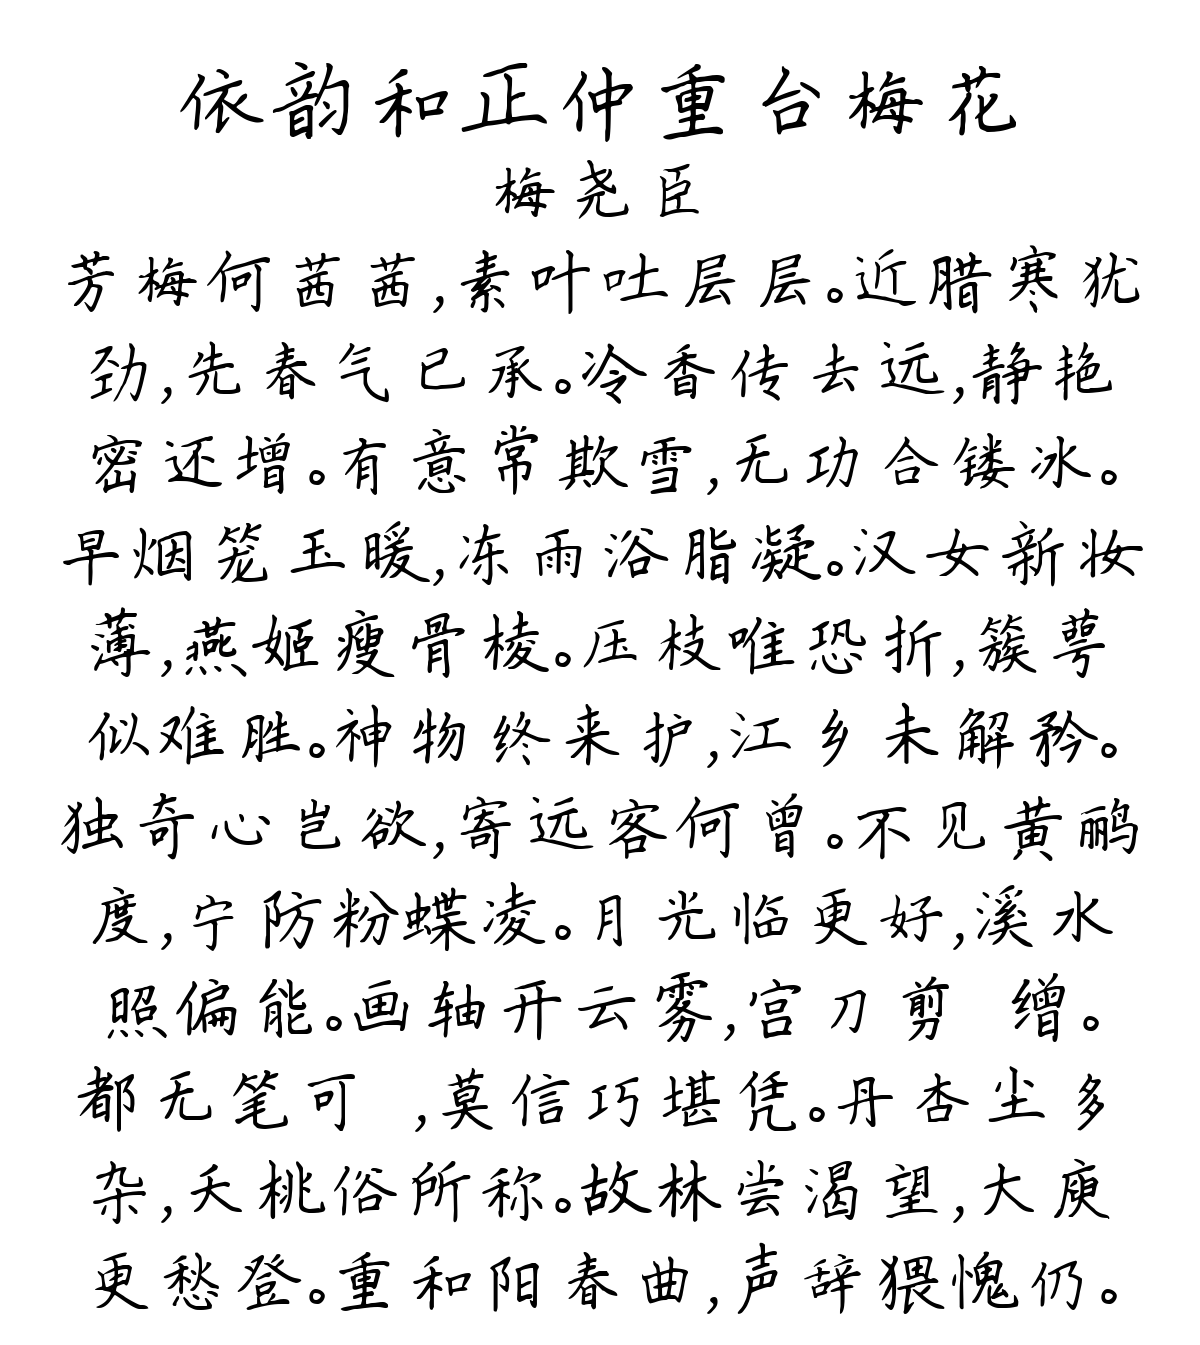 依韵和正仲重台梅花
梅尧臣
芳梅何茜茜,素叶吐层层。近腊寒犹
劲,先春气已承。冷香传去远,静艳
密还增。有意常欺雪,无功合镂冰。
早烟笼玉暖,冻雨浴脂凝。汉女新妆
薄,燕姬瘦骨棱。压枝唯恐折,簇萼
似难胜。神物终来护,江乡未解矜。
独奇心岂欲,寄远客何曾。不见黄鹂
度,宁防粉蝶凌。月光临更好,溪水
照偏能。画轴开云雾,宫刀剪 缯。
都无笔可 ,莫信巧堪凭。丹杏尘多
杂,夭桃俗所称。故林尝渴望,大庾
更愁登。重和阳春曲,声辞猥愧仍。